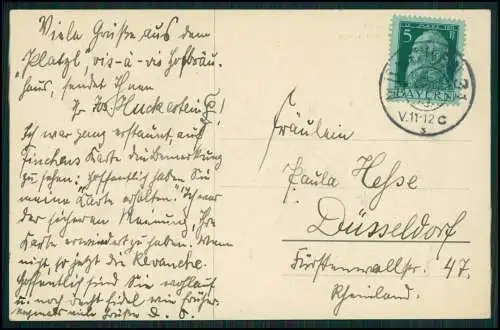 Viele Grüße aus dem
"Platzl", vis-à-vis Hofbräu-
haus, sendet Ihnen
Ihr Jos. Huckestein!
Ich war ganz erstaunt, auf
Finchens Karte die Bemerkung
zu sehen: "hoffentlich haben Sie
meine Karte erhalten." Ich war
der sicheren Meinung, Ihre
Karte erwidert zu haben. Wenn
nicht, so jetzt die Revanche.
Hoffentlich sind Sie wohlauf
u. noch recht fidel wie früher.
viele Grüße d. O.
5 5
BAYERN
V. 11-12 C
3
Fräulein
Paula Hesse
Düsseldorf
Fürstenwallstr. 47.
Rheinland.